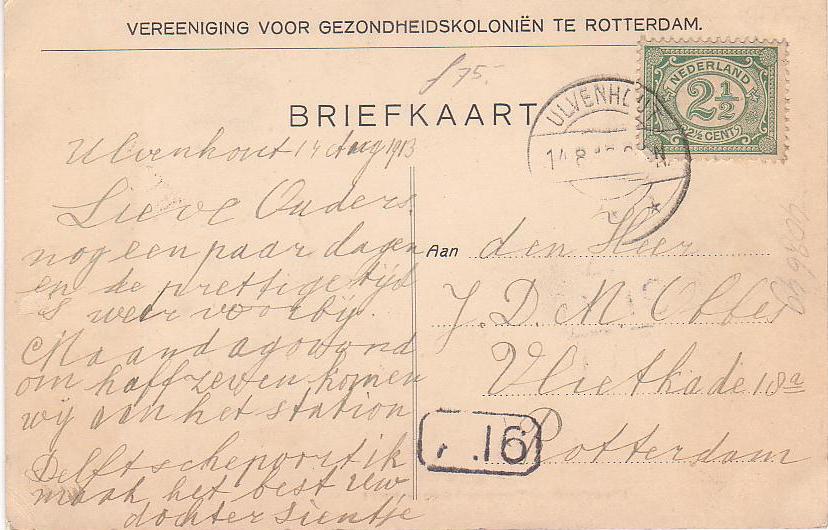 VEREENIGING VOOR GEZONDHEIDSKOLONIËN TE ROTTERDAM.
f 75.-
BRIEFKAART
NEDERLAND
2½
2½ CENT
ULVENHOUT
14.8. N.
Ulvenhout 14 Aug 1913
Lieve Ouders,
nog een paar dagen
en de prettige tijd
is weer voorbij.
Maandagavond
om half zeven komen
wij aan het station
Delftschepoort ik
maak het best Uw
dochter Sientje
Aan den Heer
J. D. M. Obbes
Vlietkade 18a
Rotterdam
16